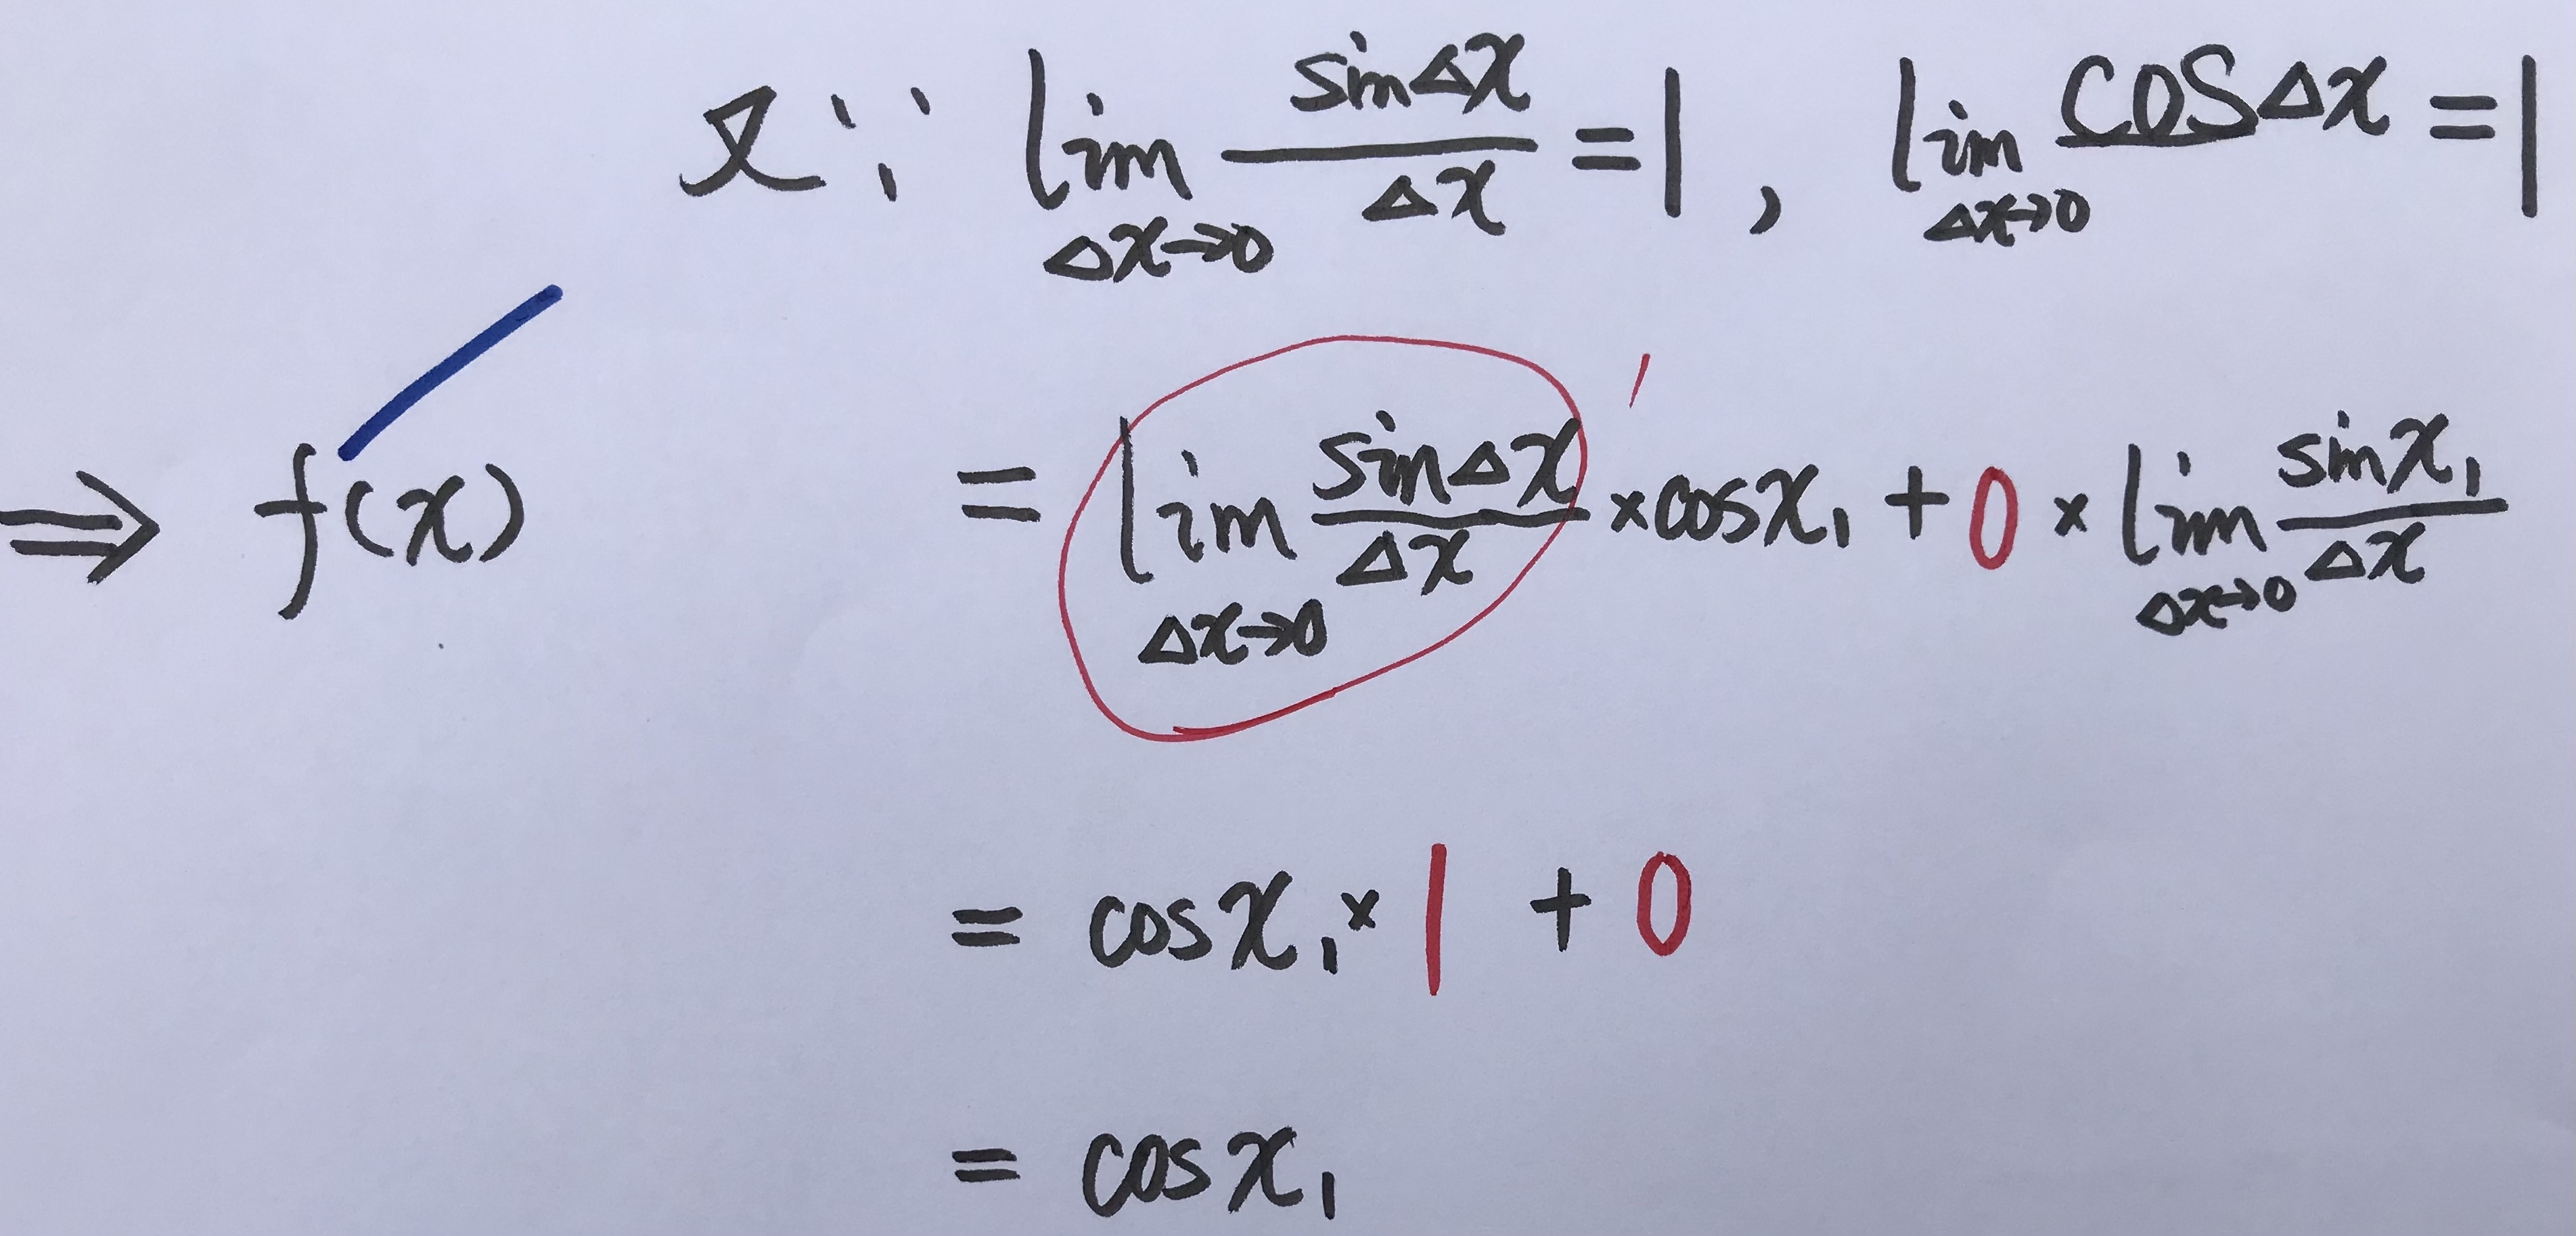 又∵ lim Δx→0 sinΔx/Δx =1, lim Δx→0 cosΔx =1
⇒ f'(x) = lim Δx→0 sinΔx/Δx × cosx₁ + 0 × lim Δx→0 sinx₁/Δx
= cosx₁ × 1 + 0
= cosx₁